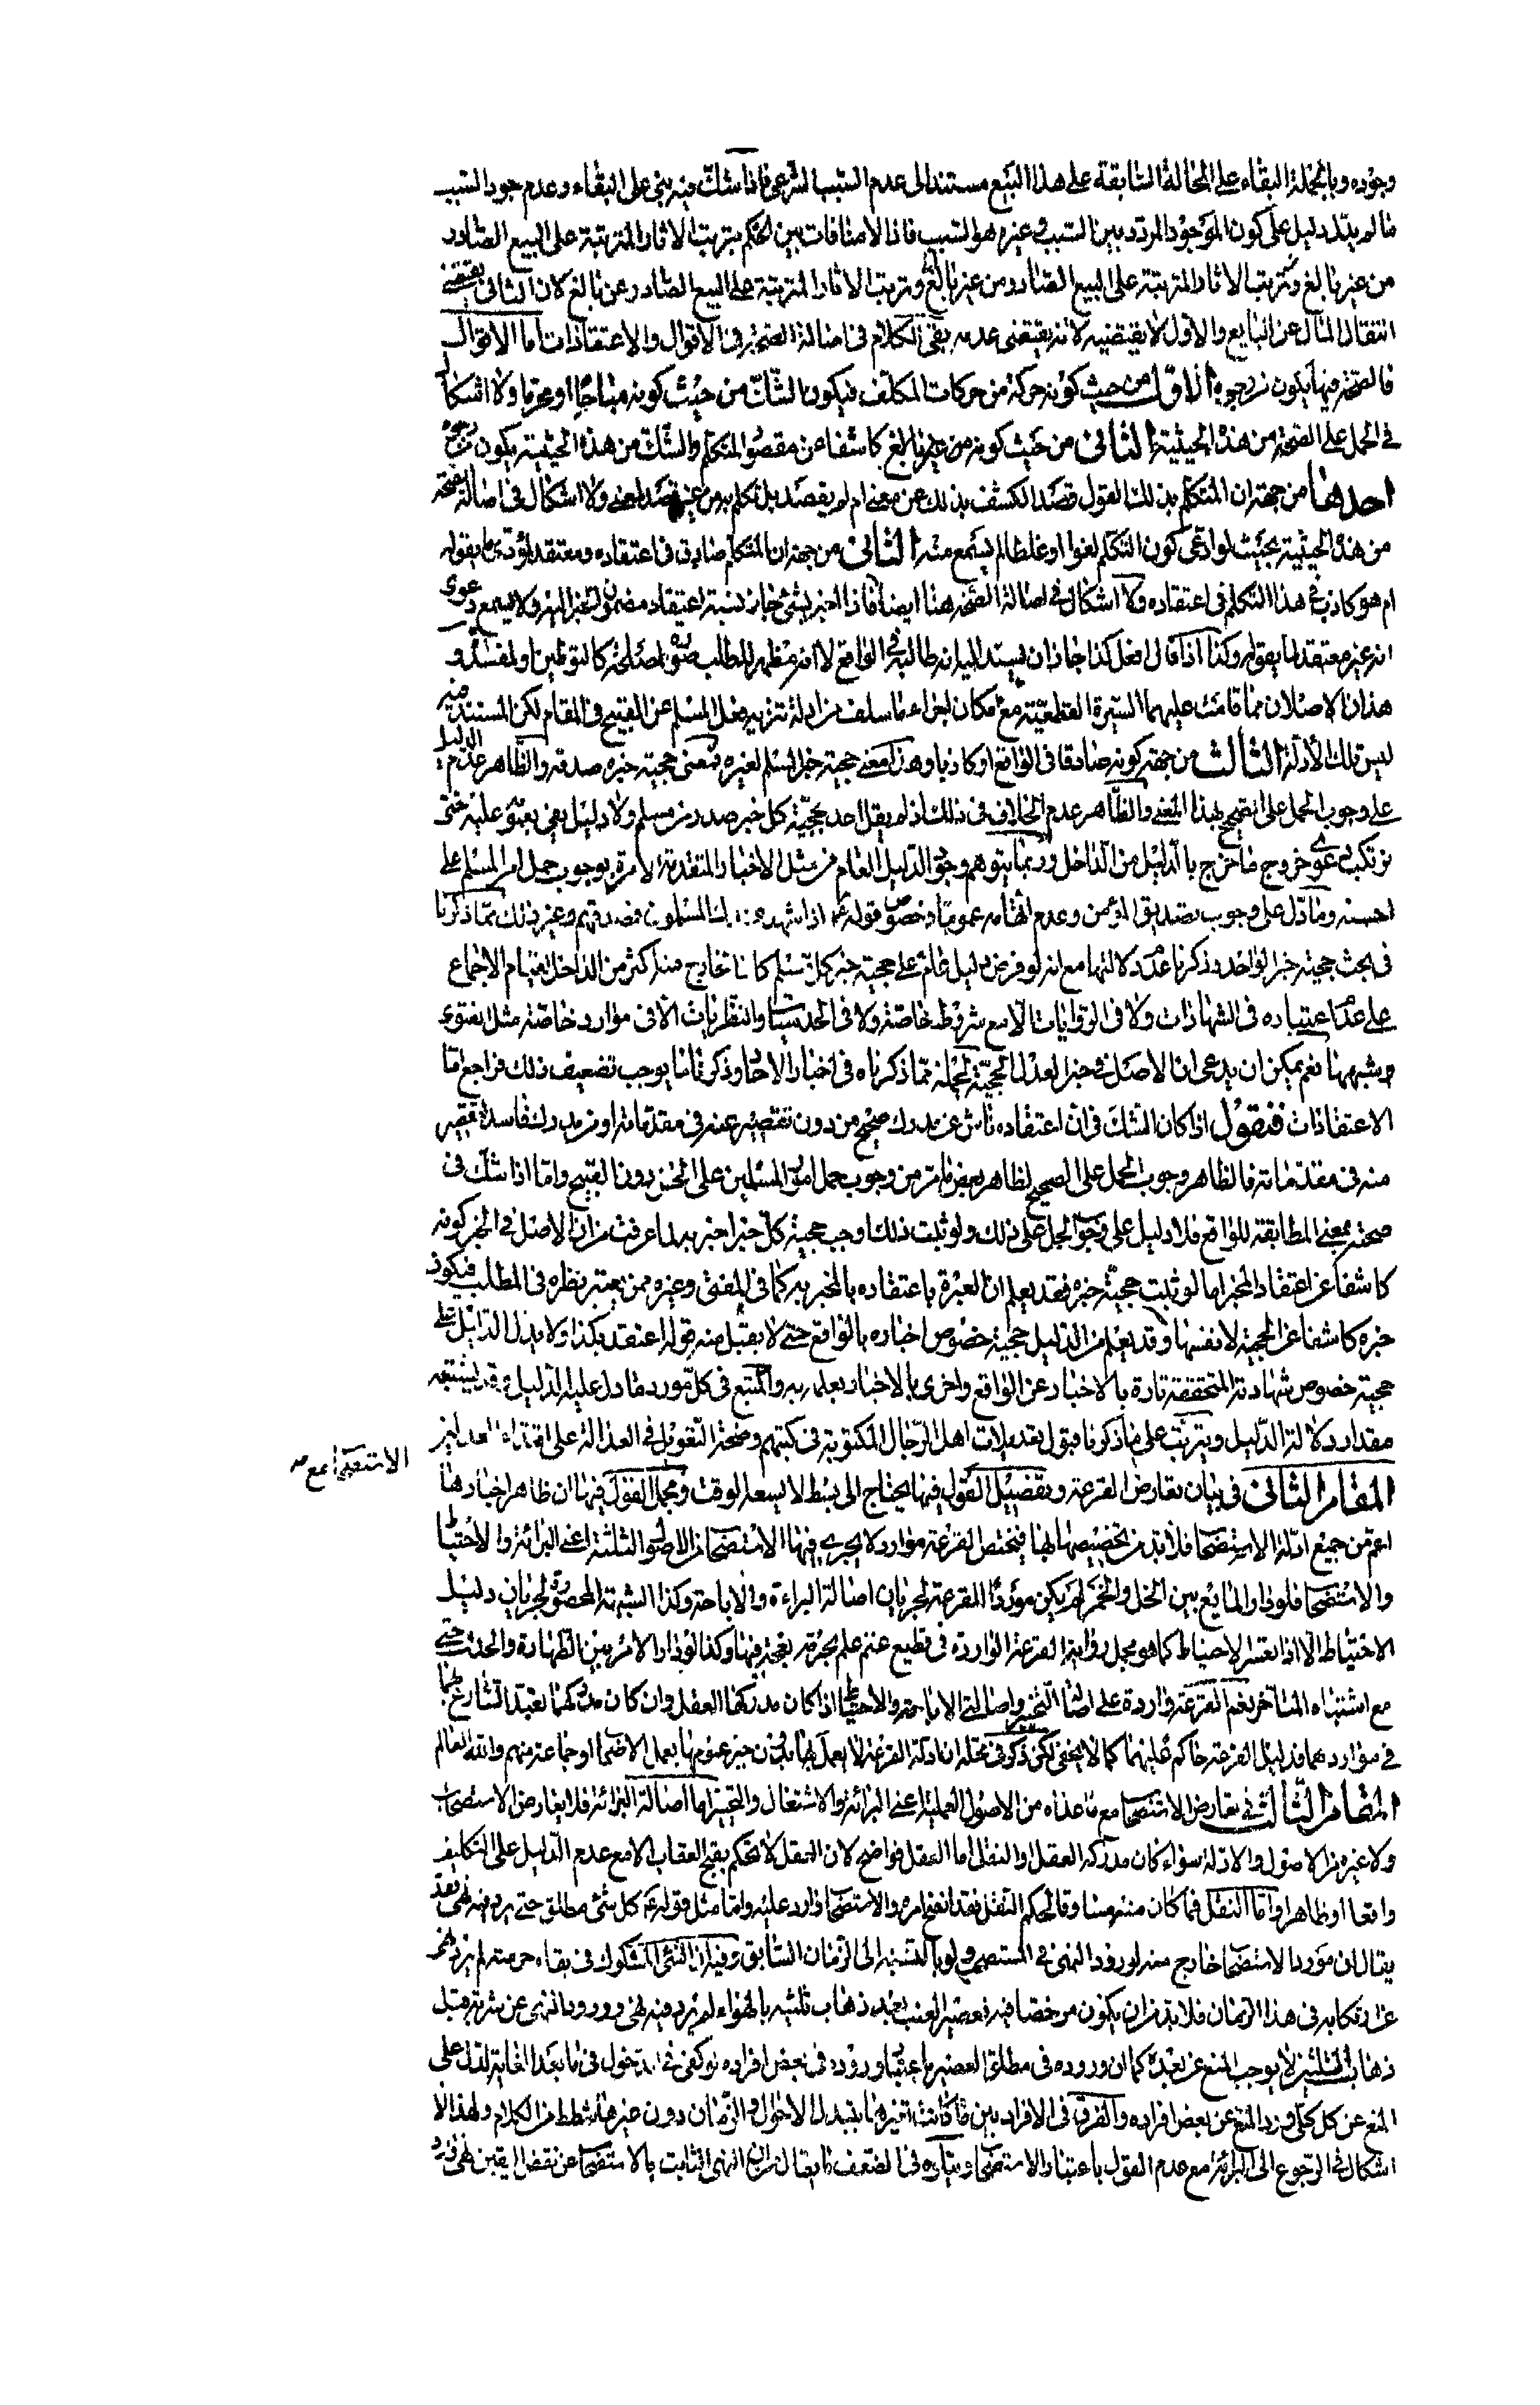 وجوده وبالجملة البقاء على الحالة السابقة على هذا البيع مستند الى عدم السبب الشرعى فاذا شك فيه بنى على البقاء وعدم وجود السبب
ما لم يدل دليل على كون الموجود المردد بين السبب وغيره هو السبب فاذا لا منافات بين الحكم بترتب الاثار المترتبة على البيع الصادر
من غير بالغ وترتب الاثار المترتبة على البيع الصادر من غير بالغ وترتب الاثار المترتبة على البيع الصادر عن بالغ لان الثانى يقتضى
انتقال المال عن البايع والاول لا يقتضيه لا انه يقتضى عدمه بقى الكلام فى اصالة الصحة فى الاقوال والاعتقادات اما الاقوال
فالصحة فيها يكون من وجوه الاول من حيث كونه حركة من حركات المكلف فيكون الشك من حيث كونه مباحا او محرما ولا اشكال
فى الحمل على الصحة من هذه الحيثية الثانى من حيث كونه من غير بالغ كاشفا عن مقصود المتكلم والشك من هذه الحيثية يكون من وجوه
احدها من جهة ان المتكلم بذلك القول قصد الكشف بذلك عن معنى ام لم يقصد بل تكلم به من غير قصد لمعنى ولا اشكال فى اصالة الصحة
من هذه الحيثية بحيث لو ادعى كون التكلم لغوا او غلطا لم يسمع منه الثانى من جهة ان المتكلم صادق فى اعتقاده ومعتقد لمؤدى ما يقوله
ام هو كاذب فى هذا التكلم فى اعتقاده ولا اشكال فى اصالة الصحة هنا ايضا فاذا اخبر بشئ جاز نسبة اعتقاد مضمون الخبر اليه ولا يسمع دعوى
انه غير معتقد لما يقوله وكذا اذا قال افعل كذا جاز ان يسند اليه انه طالبه فى الواقع لا انه مظهر للطلب صورة لمصلحة كالتوطين او لمفسدة و
هذان الاصلان مما قامت عليهما السيرة القطعية مع امكان اجراء ما سلف من ادلة تنزيه فعل المسلم عن القبيح فى المقام لكن المستند فيه
ليس تلك الادلة الثالث من جهة كونه صادقا فى الواقع او كاذبا وهذا معنى حجية خبر المسلم لغيره فمعنى حجية خبره صدقه والظاهر عدم الدليل
على وجوب الحمل على الصحيح بهذا المعنى والظاهر عدم الخلاف فى ذلك اذ لم يقل احد بحجية كل خبر صدر من مسلم ولا دليل يفى بعمومه عليه حتى
نرتكب دعوى خروج ما خرج بالدليل من الداخل وربما يتوهم وجود الدليل العام من مثل الاخبار المتقدمة الامرة بوجوب حمل امر المسلم على
احسنه وما دل على وجوب تصديق المؤمن وعدم اتهامه عموما وخصوص قوله ع اذا شهد عندك المسلمون فصدقهم وغير ذلك مما ذكرنا
فى بحث حجية خبر الواحد وذكرنا عدم دلالتها مع انه لو فرض دليل عام على حجية خبر كل مسلم كان الخارج منه اكثر من الداخل لقيام الاجماع
على عدم اعتباره فى الشهادات ولا فى الروايات الا مع شروط خاصة ولا فى الحدسيات والنظريات الا فى موارد خاصة مثل الفتوى
وشبهها نعم يمكن ان يدعى ان الاصل فى خبر العدل الحجية لجملة مما ذكرناه فى اخبار الاحاد وذكرنا ما يوجب تضعيف ذلك فراجع اما
الاعتقادات فنقول اذا كان الشك فى ان اعتقاده ناش عن مدرك صحيح من دون تقصير عنه فى مقدماته او من مدرك فاسد لتقصير
منه فى مقدماته فالظاهر وجوب الحمل على الصحيح لظاهر بعض ما مر من وجوب حمل امور المسلمين على الحسن دون القبيح واما اذا شك فى
صحته بمعنى المطابقة للواقع فلا دليل على وجوب الحمل على ذلك ولو ثبت ذلك اوجب حجية كل خبر اخبر به لما عرفت من ان الاصل فى الخبر كونه
كاشفا عن اعتقاد المخبر اما لو ثبت حجية خبره فقد يعلم ان العبرة باعتقاده بالمخبر به كما فى المفتى وغيره ممن يعتبر نظره فى المطلب فيكون
خبره كاشفا عن الحجية لا نفسها وقد يعلم من الدليل حجية خصوص اخباره بالواقع حتى لا يقبل منه قوله اعتقد بكذا ولا يدل الدليل على
حجية خصوص شهادته المتحققة تارة بالاخبار عن الواقع واخرى بالاخبار بعلمه به والمتبع فى كل مورد ما دل عليه الدليل وقد يشتبه
مقدار دلالة الدليل ويترتب على ما ذكرنا قبول تعديلات اهل الرجال المكتوبة فى كتبهم وصحة التعويل فى العدالة على اقتداء العدلين
المقام الثانى فى بيان تعارض القرعة وتفصيل القول فيها يحتاج الى بسط لا يسعه الوقت ومجمل القول فيها ان ظاهر اخبارها
الاستصحاب مع صح
اعم من جميع ادلة الاستصحاب فلا بد من تخصيصها بها فيختص القرعة بموارد لا يجرى فيها الاستصحاب نعم الاصول الثلثة اعنى البرائة والاحتياط
والاستصحاب فلو دار المايع بين الخل والخمر لم يكن موردا للقرعة لجريان اصالة البراءة والاباحة وكذا الشبهة المحصورة لجريان دليل
الاحتياط الا اذا تعسر الاحتياط كما هو محمل رواية القرعة الواردة فى قطيع غنم علم بحرمة نعجة فيها وكذا لو دار الامر بين الطهارة والحدث حتى
مع اشتباه المتاخر نعم القرعة واردة على اصالة التخيير واصالتى الاباحة والاحتياط اذا كان مدركهما العقل وان كان مدركهما تعبد الشارع بهما
فى مواردهما فدليل القرعة حاكم عليهما كما لا يخفى لكن ذكر فى محله ان ادلة القرعة لا يعمل بها بدون جبر عمومها بعمل الاصحاب او جماعة منهم والله العالم
المقام الثالث فى تعارض الاستصحاب مع ما عداه من الاصول العملية اعنى البرائة والاشتغال والتخيير اما اصالة البرائة فلا يعارض الاستصحاب
ولا غيره من الاصول والادلة سواء كان مدركه العقل او النقل اما العقل فواضح لان العقل لا يحكم بقبح العقاب الا مع عدم الدليل على التكليف
واقعا او ظاهرا واما النقل فما كان منه مساوقا لحكم العقل فقد اتضح امره والاستصحاب وارد عليه واما مثل قوله ع كل شئ مطلق حتى يرد فيه نهى فقد
يقال ان مورد الاستصحاب خارج منه لورود النهى فى المستصحب ولو بالنسبة الى الزمان السابق وفيه ان الشئ المشكوك فى بقاء حرمته لم يرد نهى
عن ارتكابه فى هذا الزمان فلا بد من ان يكون مرخصا فيه فعصير العنب بعد ذهاب ثلثيه بالهواء لم يرد فيه نهى وورود النهى عن شربه قبل
ذهاب الثلثين لا يوجب المنع عنه بعده كما ان وروده فى مطلق العصير باعتبار وروده فى بعض افراده لو كفى فى الدخول فى ما بعد الغاية لدل على
المنع عن كل كلى ورد المنع عن بعض افراده والفرق فى الافراد بين ما كانت تغيرها بتبدل الاحوال والزمان دون غيرها شطط من الكلام ولهذا لا
اشكال فى الرجوع الى البرائة مع عدم القول باعتبار الاستصحاب ويتلوه فى الضعف ما يقال من ان النهى الثابت بالاستصحاب عن نقض اليقين نهى وارد